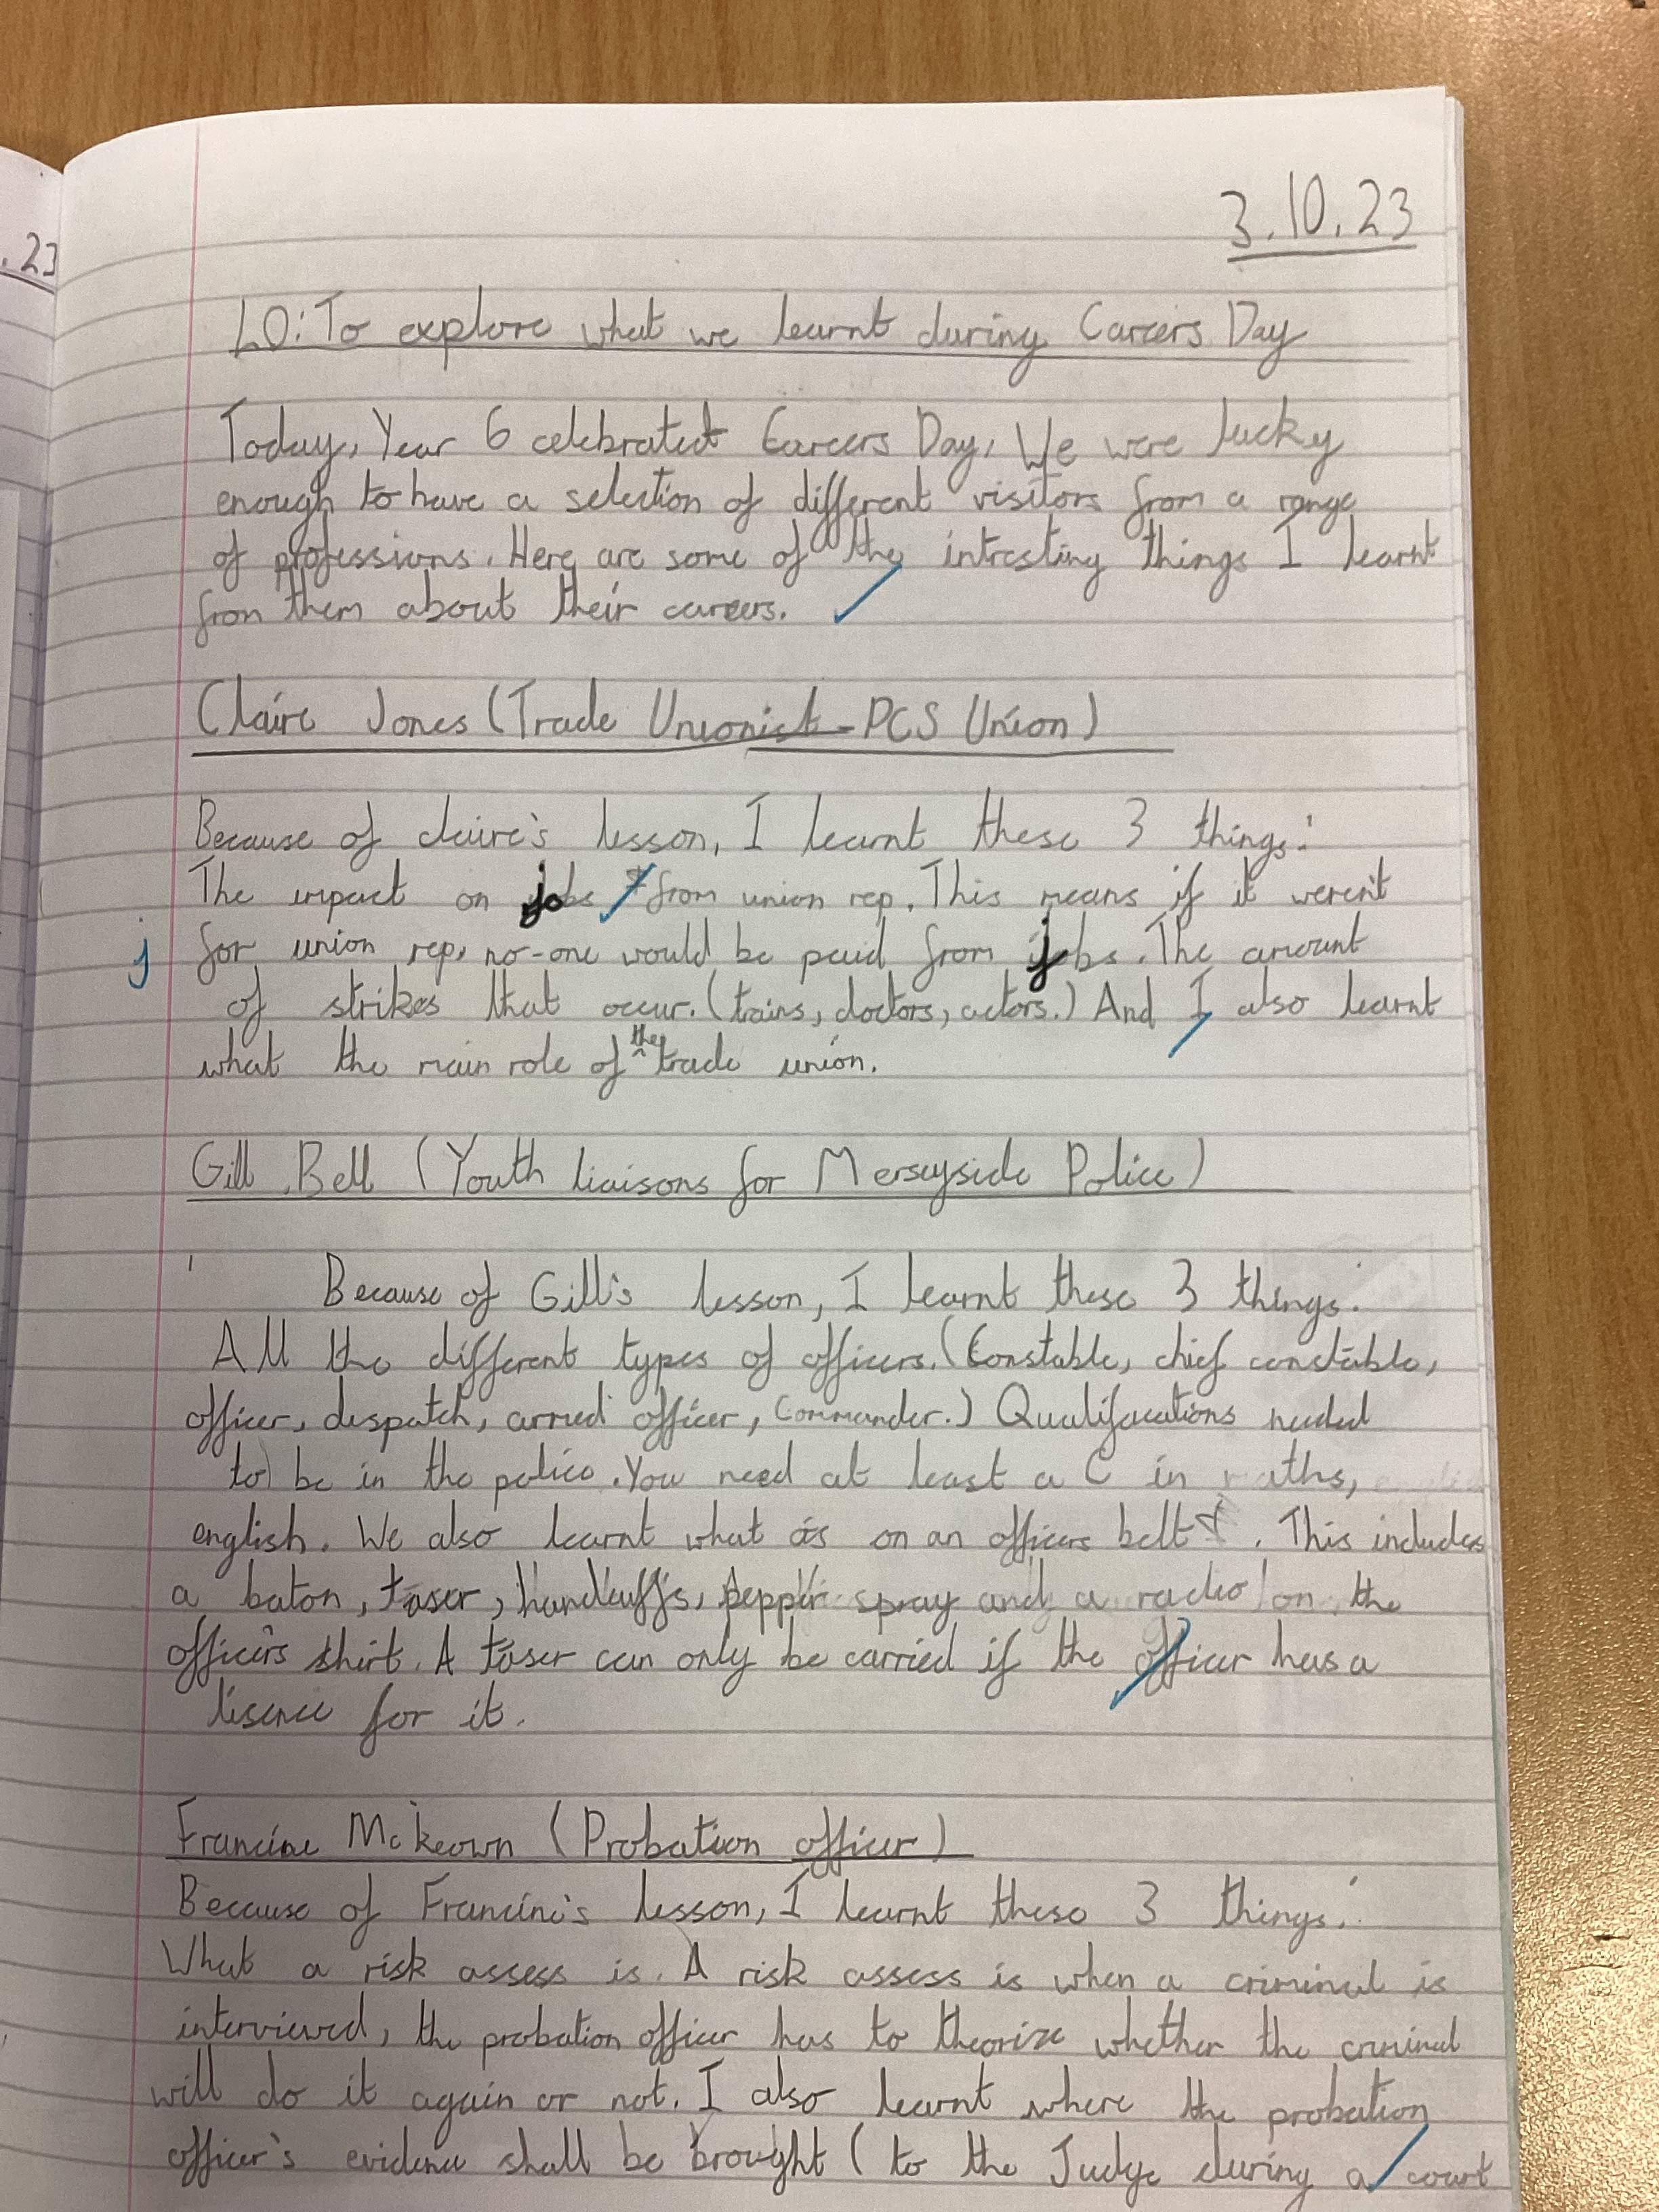 . 23
3.10.23
LO: To explore what we learnt during Careers Day
Today, Year 6 celebrated Careers Day. We were lucky
enough to have a selection of different visitors from a range
of professions. Here are some of the intresting things I learnt
from them about their careers.
Claire Jones (Trade Unionist - PCS Union)
Because of claire's lesson, I learnt these 3 things:
The impact on jobs from union rep. This means if it weren't
j for union rep, no-one would be paid from jobs. The amount
of strikes that occur. (trains, doctors, actors.) And I also learnt
what the main role of the trade union.
Gill Bell (Youth liaisons for Merseyside Police)
Because of Gill's lesson, I learnt these 3 things:
All the different types of officers. (Constable, chief constable,
officer, despatch, armed officer, Commander.) Qualifacations needed
to be in the police. You need at least a C in maths,
english. We also learnt what is on an officers belt. This includes
a baton, taser, handcuffs, pepper spray and a radio on the
officer's shirt. A taser can only be carried if the officer has a
lisence for it.
Francine Mckeown (Probation officer)
Because of Francine's lesson, I learnt these 3 things:
What a risk assess is. A risk assess is when a criminal is
interviewed, the probation officer has to theorise whether the criminal
will do it again or not. I also learnt where the probation
officer's evidence shall be brought (to the Judge during a court